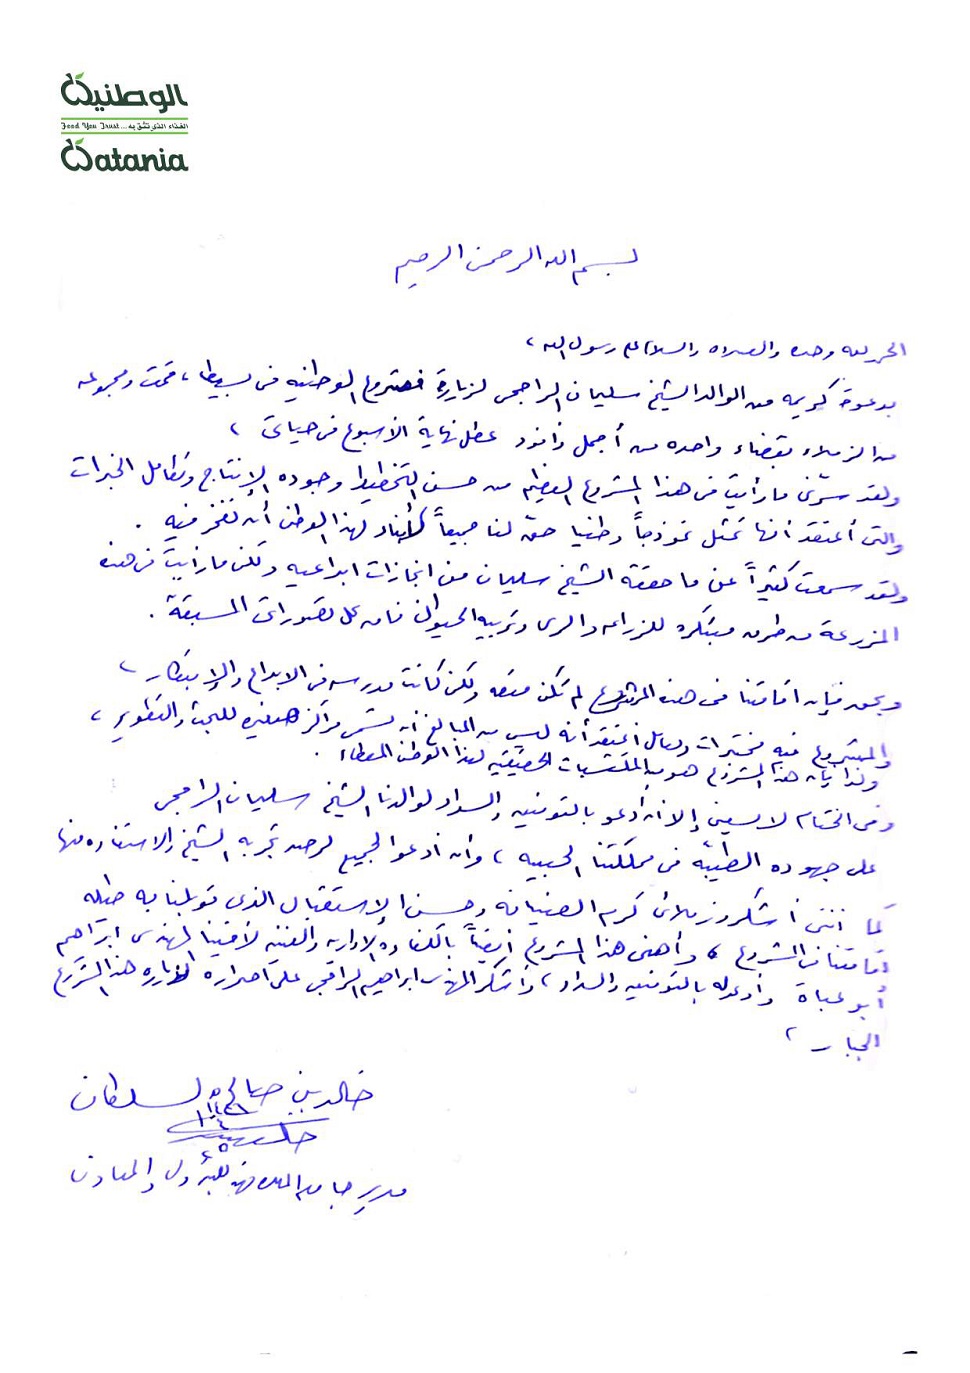 الوطنية
Food You Trust... الغذاء الذي تثق به
Watania
بسم الله الرحمن الرحيم
الحمد لله وحده والصلاة والسلام على رسول الله ،
بدعوة كريمه من الوالد الشيخ سليمان الراجحي لزيارة مشروع الوطنيه في بسيطا ، قمت ومجموعه
من الزملاء بقضاء واحده من أجمل عطل نهاية الأسبوع في حياتي ،
ولقد سرني ما رأيت في هذا المشروع العظيم من حسن التخطيط وجوده الإنتاج وتكامل الخبرات
والتي أعتقد أنها تمثل نموذجاً وطنيا حق لنا جميعاً كأبناء لهذا الوطن أن نفخر فيه .
ولقد سمعت كثيراً عن ما حققه الشيخ سليمان من انجازات ابداعيه ولكن ما رأيت في هذه
المزرعة من طرق مبتكره للزراعه والري وتربيه الحيوان فاق كل تصوراتي المسبقة .
وبحق فإن اقامتنا في هذه المشروع لم تكن متعه ولكن كانت مدرسه في الابداع والإبتكار ،
والمشروع فيه مختبرات ومعامل أعتقد أنه ليس من المبالغ ان تسمى مراكز صغيره للبحث والتطوير ،
ولذا فإن هذا المشروع هو من المكتسبات الحقيقيه لهذا الوطن المعطاء .
وفي الختام لا يسعني إلا أن أدعو بالتوفيق والسداد لوالدنا الشيخ سليمان الراجحي
على جهوده الطيبه في مملكتنا الحبيبه ، وأن أدعو الجميع لرصد تجربه الشيخ والاستفاده منها
كما أنني أشكر وزملائي كرم الضيافه وحسن الإستقبال الذي قوبلنا به طيله
اقامتنا في المشروع ، وأهنئ هذا المشروع أيضاً بالكفاءه الإداريه والفنيه لأخينا المهندس ابراهيم
أبو عباة وأدعو له بالتوفيق والسداد ، وأشكر المهندس ابراهيم الراجحي على اصراره لزياره هذا المشروع
الجبار ،
خالد بن صالح السلطان
مدير جامعة الملك فهد للبترول والمعادن